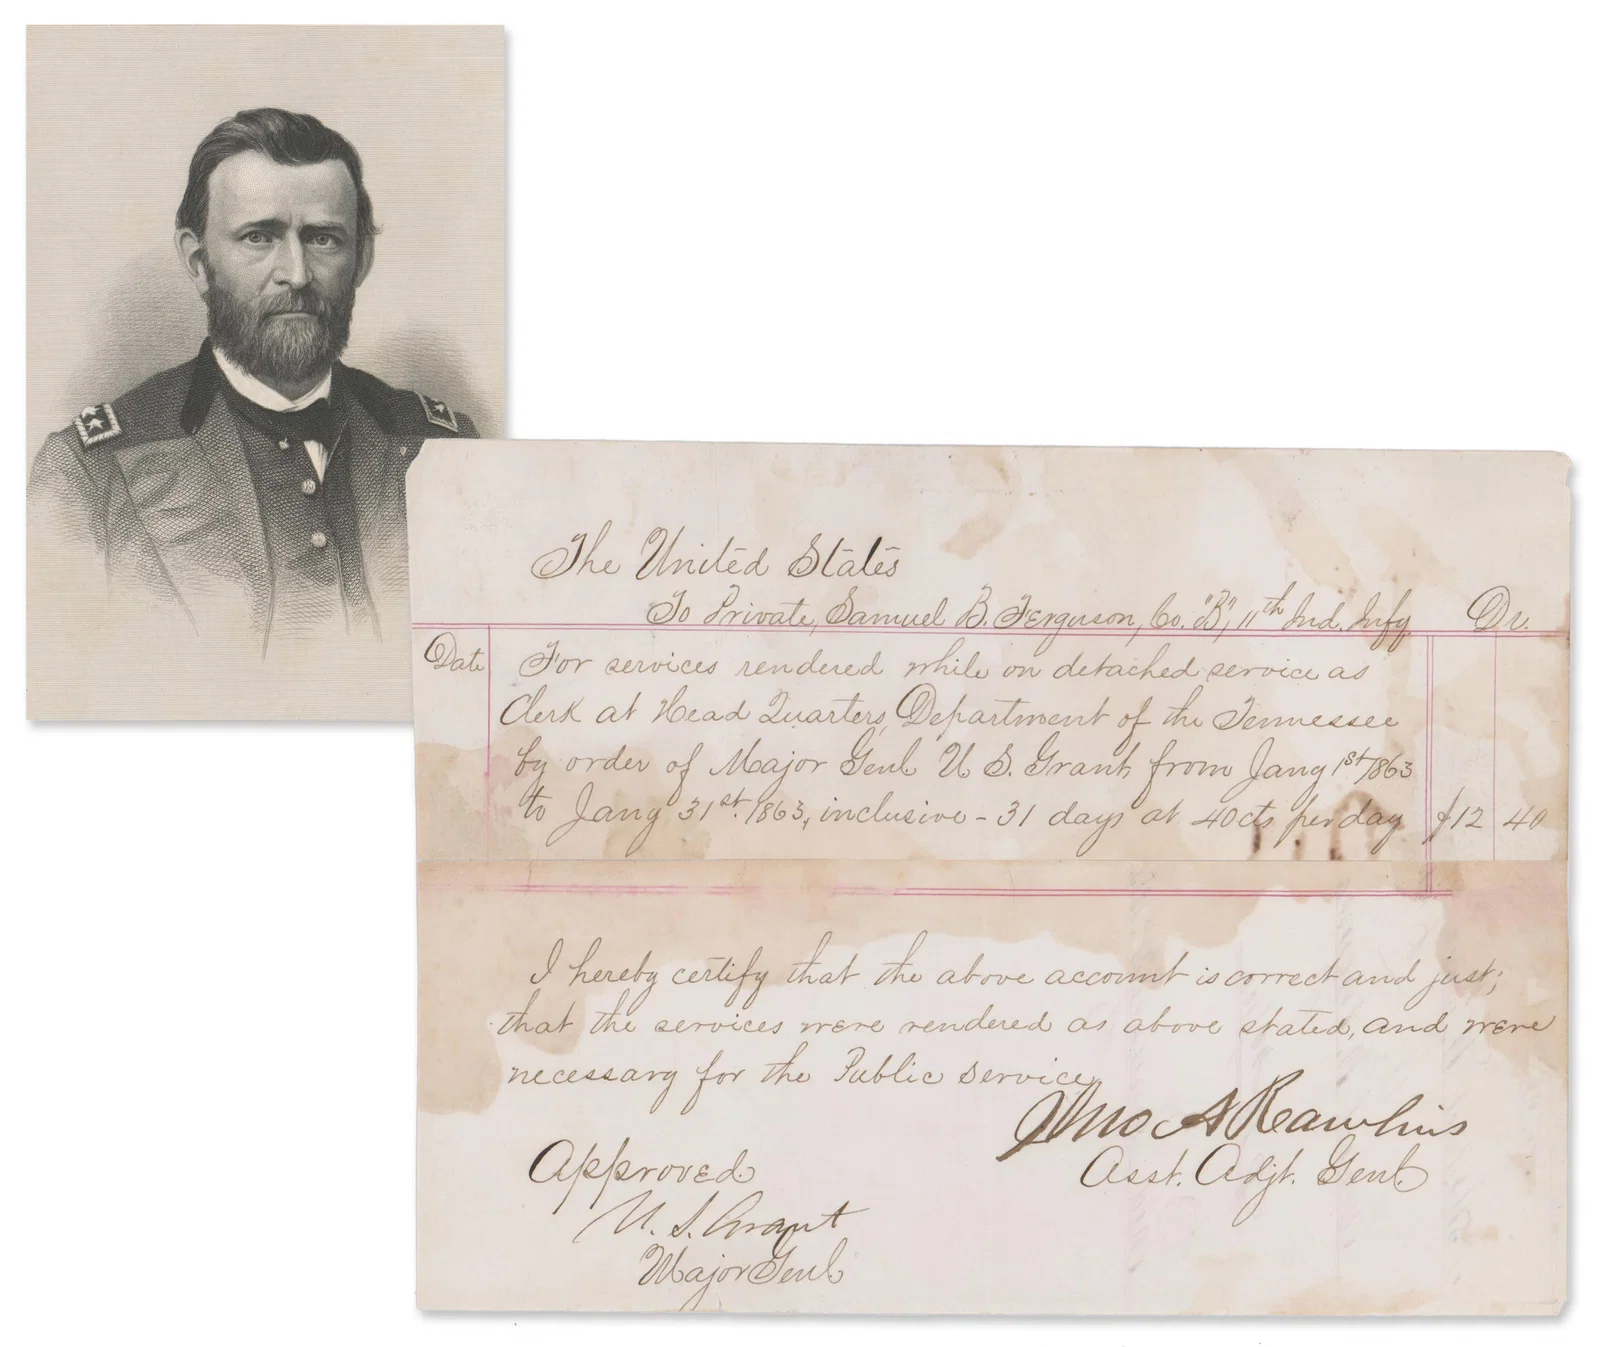 The United States
To Private, Samuel B. Ferguson, Co. "B", 11th Ind. Infy Dr.
Date For services rendered while on detached service as
Clerk at Head Quarters, Department of the Tennessee
by order of Major Genl U. S. Grant, from Jany 1st 1863
to Jany 31st. 1863, inclusive - 31 days at 40cts per day $12 40
I hereby certify that the above account is correct and just;
that the services were rendered as above stated, and were
necessary for the Public Service,
Jno A Rawlins
Asst. Adjt. Genl.
Approved
U. S. Grant
Major Genl